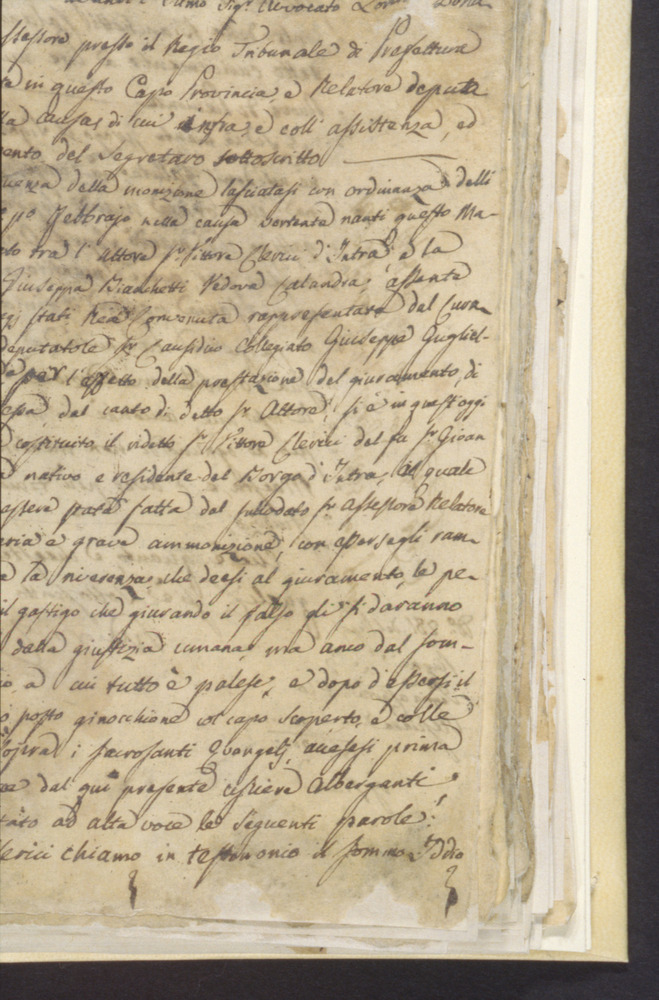 Sig.r Avvocato
assessore presso il Regio Tribunale di Prefettura
te in questo Capo Provincia, e Relatore deputa
la causa, di cui infra, e coll' assistenza, ed
ento del Segretaro sottoscritto
uenza della monizione lasciatasi con ordinanza delli
p.o Febbrajo nella causa vertente nanti questo Ma-
to tra l' Attore Sr. Vittore Clerici d' Intra e la
Giuseppa Bianchetti Vedova Calandra, assente
gj stati Rea Convenuta rappresentata dal Cura-
deputatole Sr. Causidico Collegiato Giuseppe Gugliel-
e per l' effetto della prestazione del giuramento, di
essa dal canto di detto Sr. Attore, si è in quest'oggi
costituito il videtto Sr. Vittore Clerici del fu Sr. Gioan
nativo e residente del Borgo d' Intra, al quale
essere stata fatta dal prelodato Sr. Assessore Relatore
eria e grave ammonizione, con essersegli ram-
la riverenza, che deesi al giuramento, le pe-
il gastigo che giurando il falso gli si daranno
dalla giustizia umana, ma anco dal som-
io, a cui tutto è palese, e dopo d'essersi il
posto ginocchione col capo scoperto, e colle
i sacrosanti Evangelj, avessesi prima
dal qui presente usciere Alberganti
tato ad alta voce le seguenti parole:
lerici chiamo in testimonio il sommo Iddio